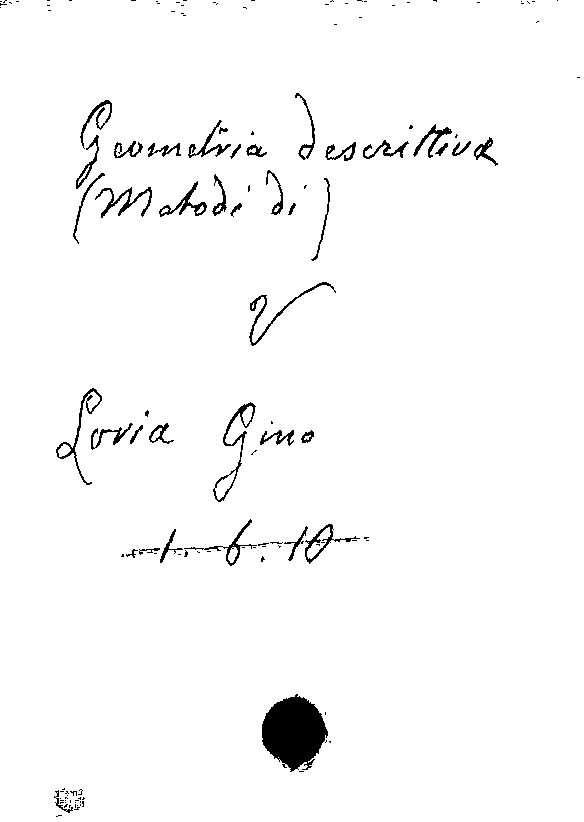 Geometria descrittiva
(Metodi di)
V
Loria Gino
1. 6. 10